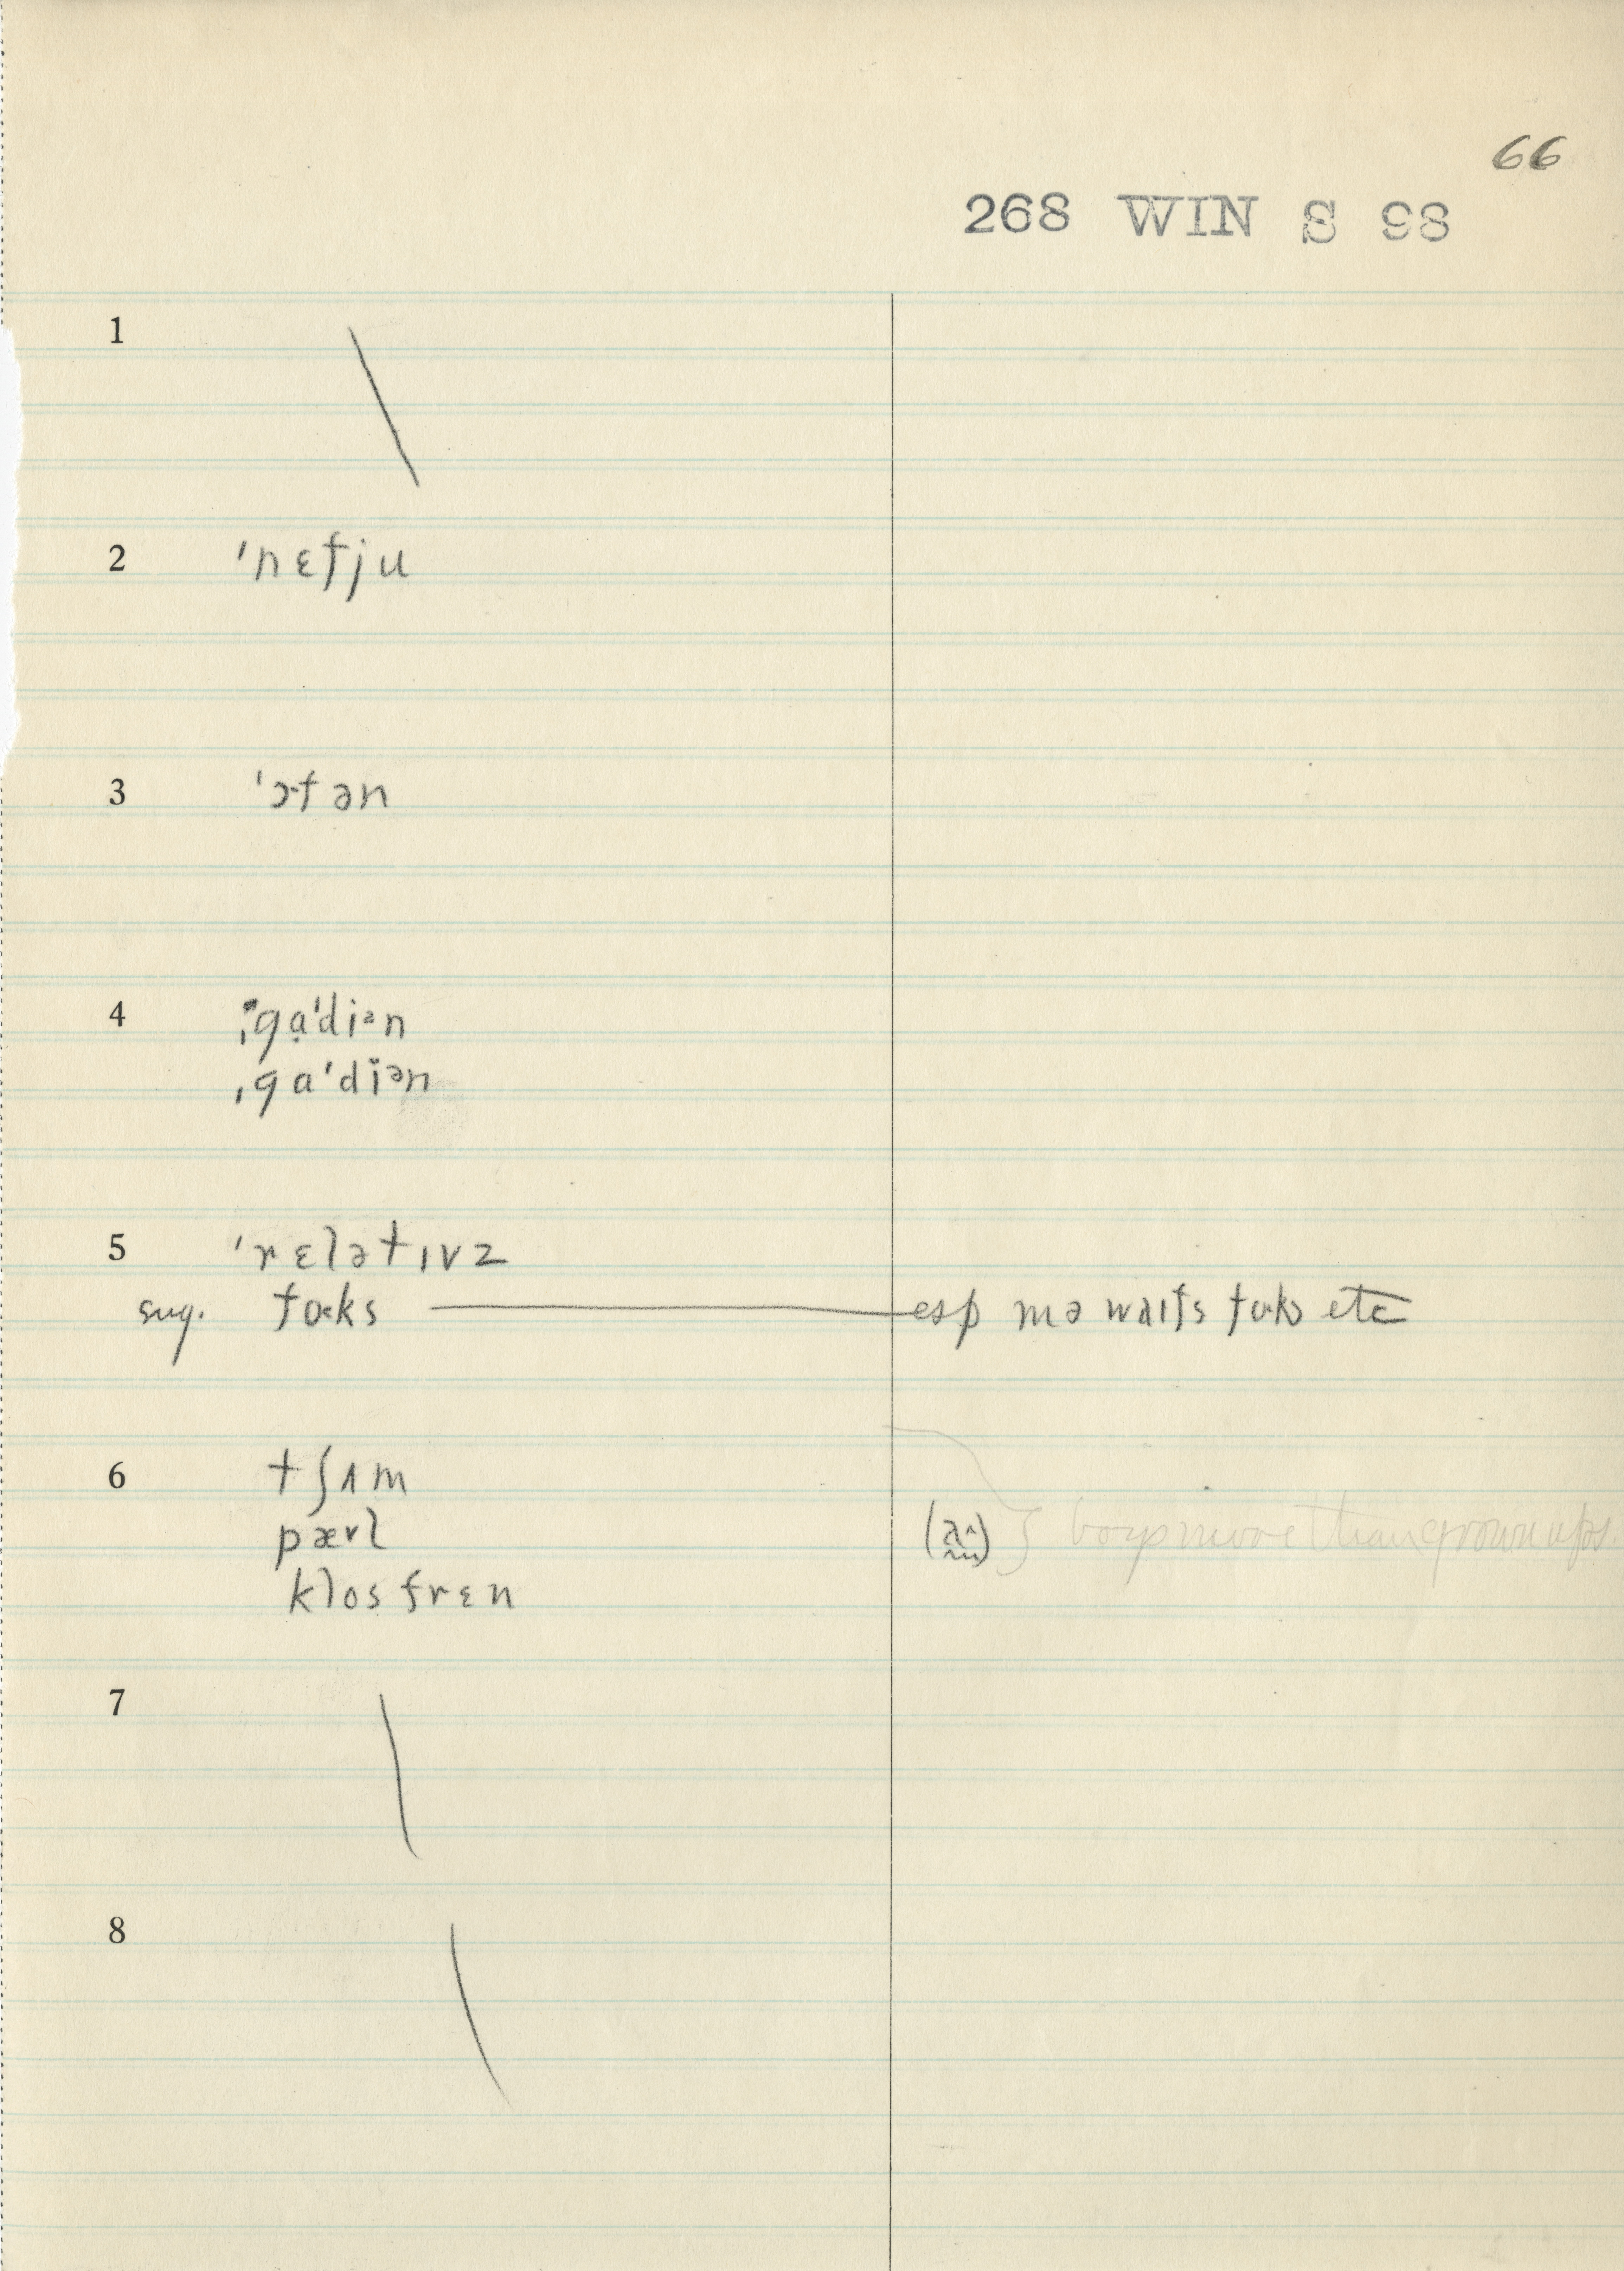 66
268 WIN S 98
1
2 ˈnɛfju
3 ˈɔfən
4 ˌgɑ̣ˈdiᵊn
ˌgɑˈdiən
5 ˈrɛlətɪvz
sug. foks esp mə waɪfs foks etc
6 tʃʌm
pævl
klos frɛn
boys more than grown ups.
7
8